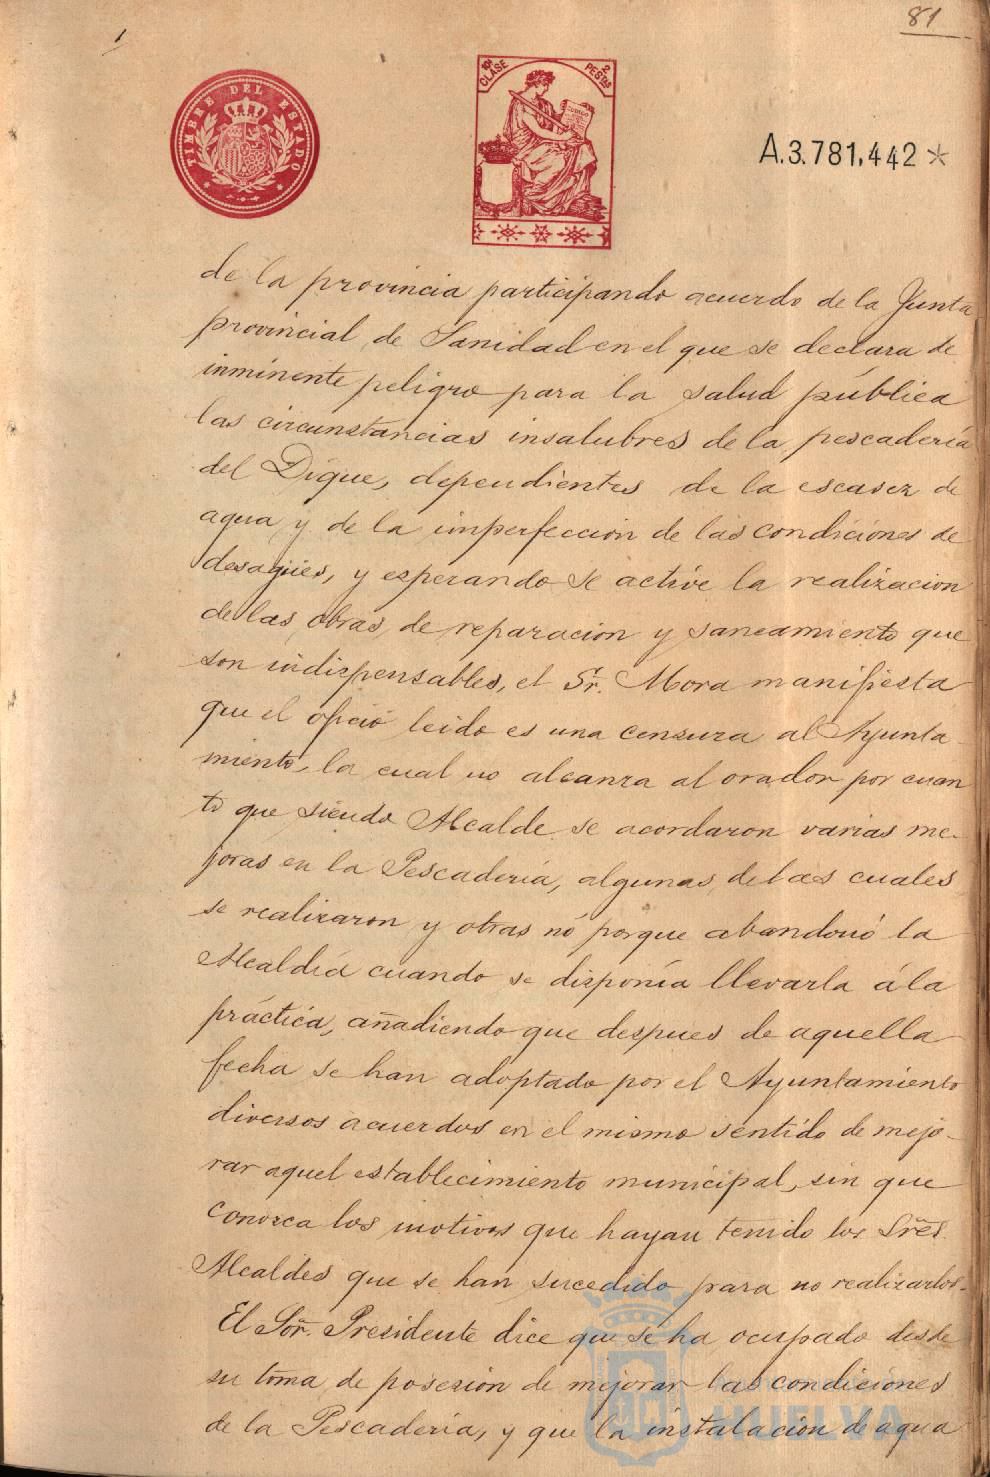 1
81
TIMBRE DEL ESTADO
10ª CLASE 2 PESTAS
A.3.781,442 *
de la provincia participando acuerdo de la Junta
provincial de Sanidad en el que se declara de
inminente peligro para la salud pública
las circunstancias insalubres de la pescadería
del Dique, dependientes de la escasez de
agua y de la imperfeccion de las condiciones de
desagües, y esperando se active la realizacion
de las obras de reparacion y saneamiento que
son indispensables, el Sr. Mora manifiesta
que el oficio leido es una censura al Ayunta-
miento, la cual no alcanza al orador por cuan
to que siendo Alcalde se acordaron varias me-
joras en la Pescadería, algunas de las cuales
se realizaron y otras nó porque abandonó la
Alcaldía cuando se disponía llevarla á la
práctica, añadiendo que despues de aquella
fecha se han adoptado por el Ayuntamiento
diversos acuerdos en el mismo sentido de mejo-
rar aquel establecimiento municipal, sin que
conozca los motivos que hayan tenido los Sres.
Alcaldes que se han sucedido para no realizarlos.
El Sor. Presidente dice que se ha ocupado desde
su toma de posesion de mejorar las condiciones
de la Pescadería, y que la instalacion de agua
HUELVA